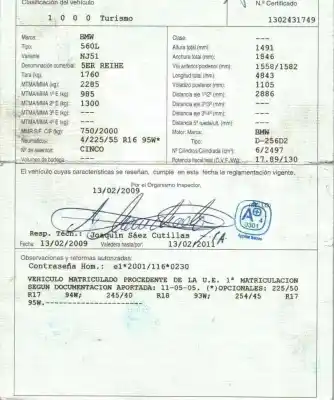 Clasificación del vehículo N.º Certificado
1 0 0 0 Turismo 1302431749
Marca: BMW Clase: ---
Tipo: 560L Altura total (mm): 1491
Variante: NJ51 Anchura total (mm): 1846
Denominación comercial: 5ER REIHE Vía anterior/posterior (mm): 1558/1582
Tara (kg): 1760 Longitud total (mm): 4843
MTMA/MMA (kg): 2285 Voladizo posterior (mm): 1105
MTMA/MMA 1º E (kg): 985 Distancia eje 1º/2º (mm): 2886
MTMA/MMA 2º E (kg): 1300 Distancia eje 2º/3º (mm): ---
MTMA/MMA 3º E (kg): --- Distancia eje 3º/4º (mm): ---
MTMA/MMA 4º E (kg): --- Distancia 5ª rueda/ult. (mm): ---
MMR S/F C/F (kg): 750/2000 Motor: Marca: BMW
Neumáticos: 4/225/55 R16 95W* Tipo: D-256D2
Nº de asientos: CINCO Nº Cilindros/Cilindrada (cm³): 6/2497
Volumen de bodega: --- Potencia fiscal/real (C.V.F./kW): 17.89/130
El vehículo cuyas características se reseñan, cumple en esta fecha la reglamentación vigente.
13/02/2009 Por el Organismo Inspector,
A
2301
Resp. Téc.: Joaquín Sáez Cutillas
Fecha 13/02/2009 Valedera hasta/por 13/02/2011
Observaciones y reformas autorizadas:
Contraseña Hom.: e1*2001/116*0230
VEHICULO MATRICULADO PROCEDENTE DE LA U.E. 1ª MATRICULACION
SEGUN DOCUMENTACION APORTADA: 11-05-05. (*)OPCIONALES: 225/50
R17 94W; 245/40 R18 93W; 254/45 R17
95W.-----------------------